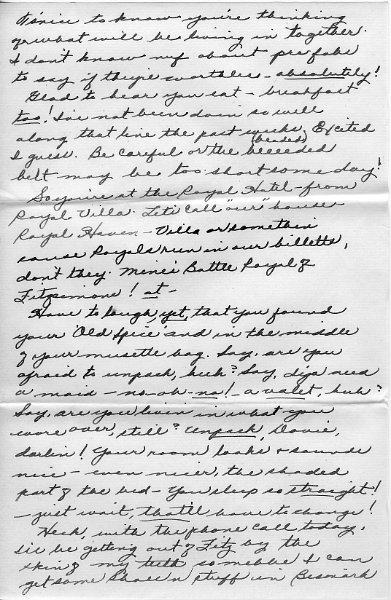 It's nice to know you're thinking
of what will be living in together.
I don't know nuf about prefabs
to say if they're worthless - absolutely!
Glad to hear you eat - breakfast
too! I've not been doin so well
along that line the past weeks. Excited
I guess. Be careful or the beeeded
(beaded)
belt may be too short some day!
So you're at the Royal Hotel - from
Royal Villa. Let's call "our" house
Royal Haven - Villa or somethin
cause Royals run in our billetts,
don't they. Mine's Battle Royal of
! at -
Have to laugh yet, that you found
your 'Old Spice' and in the middle
of your musette bag. Say, are you
afraid to unpack, huh? Say, d'ja need
a maid - no-oh-no! - a valet, huh?
Say, are you livin in what you
wore over, still? Unpack, Davie,
darlin! Your room looks & sounds
nice - even nicer, the shaded
part of the bed - You sleep so straight!
- just wait, that'll have to change!
Heck, with the phone call today,
I'll be getting out of Fitz by the
skin of my teeth somehow I can
get some shoes 'n stuff in Bismark